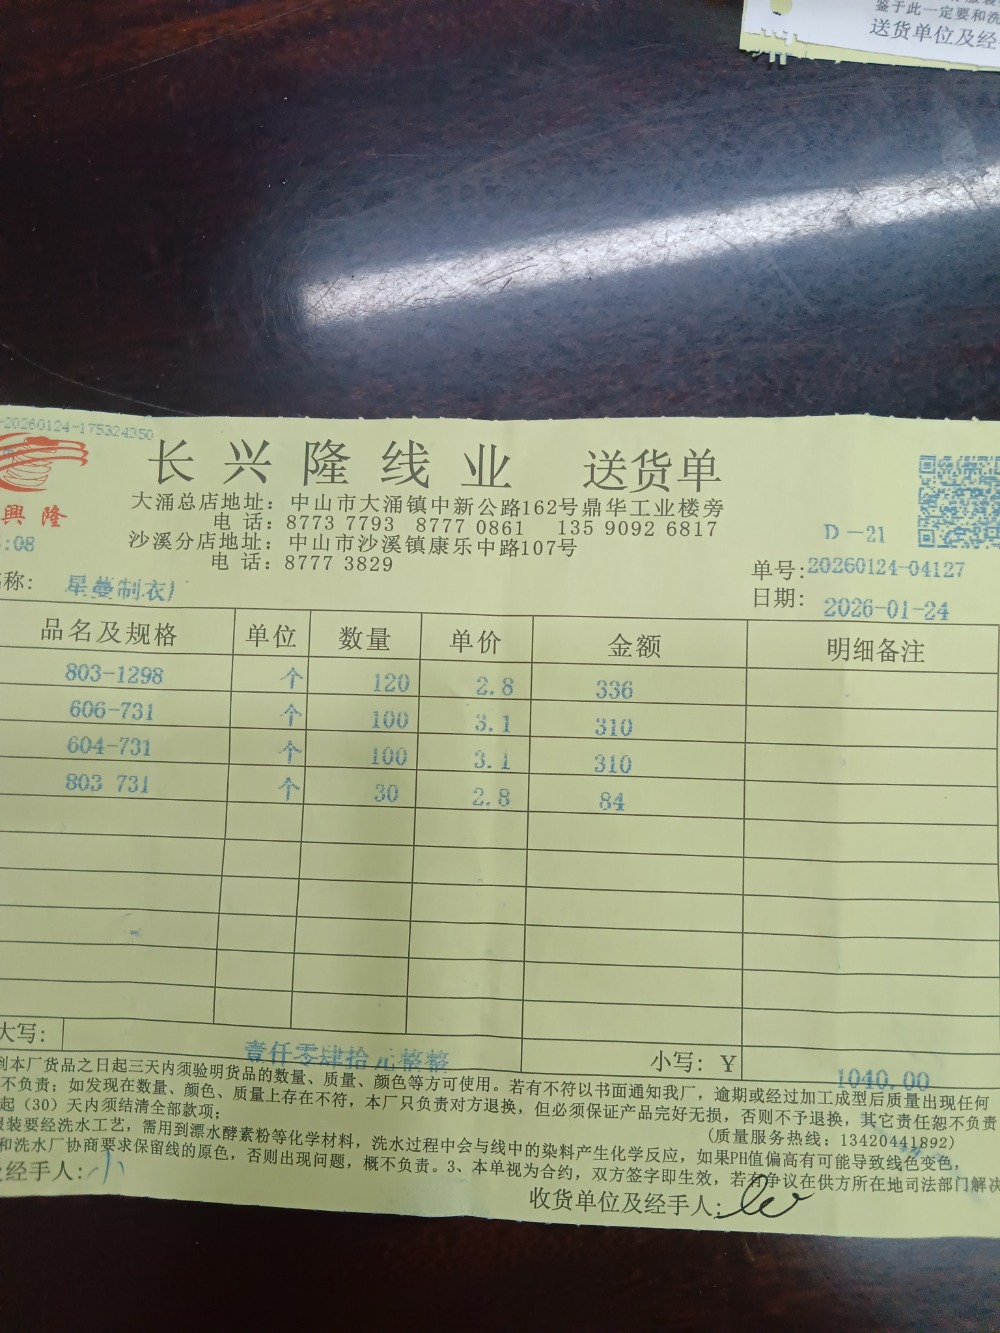 鉴于此一定要和洗
送货单位及经
-20260124-175324350
長兴隆线业 送货单
興隆
大涌总店地址：中山市大涌镇中新公路162号鼎华工业楼旁
电 话：8773 7793 8777 0861 135 9092 6817
沙溪分店地址：中山市沙溪镇康乐中路107号
电 话：8777 3829
:08
D-21
单号:20260124-04127
日期: 2026-01-24
称: 星蔓制衣厂
品名及规格 单位 数量 单价 金额 明细备注
803-1298 个 120 2.8 336
606-731 个 100 3.1 310
604-731 个 100 3.1 310
803 731 个 30 2.8 84
大写: 壹仟零肆拾元整整 小写: ￥ 1040.00
到本厂货品之日起三天内须验明货品的数量、质量、颜色等方可使用。若有不符以书面通知我厂，逾期或经过加工成型后质量出现任何
不负责；如发现在数量、颜色、质量上存在不符，本厂只负责对方退换，但必须保证产品完好无损，否则不予退换，其它责任恕不负责
起（30）天内须结清全部款项； (质量服务热线: 13420441892)
服装要经洗水工艺，需用到漂水酵素粉等化学材料，洗水过程中会与线中的染料产生化学反应，如果PH值偏高有可能导致线色变色，
和洗水厂协商要求保留线的原色，否则出现问题，概不负责。3、本单视为合约，双方签字即生效，若有争议在供方所在地司法部门解决
经手人: 小
收货单位及经手人: